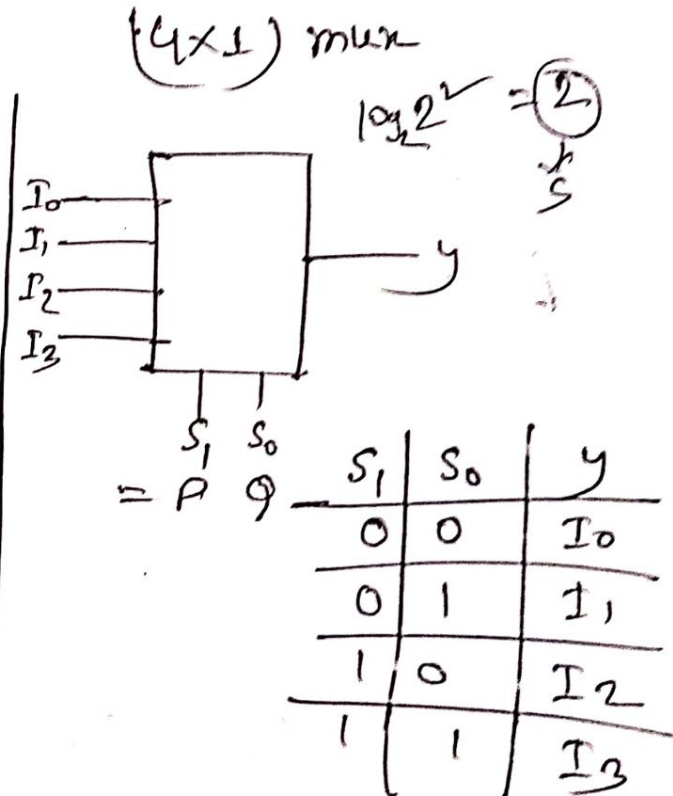 (4×1) mux
log₂2² = 2
S
I₀
I₁
I₂
I₃
y
S₁ S₀
= P Q
S₁ S₀ y
0 0 I₀
0 1 I₁
1 0 I₂
1 1 I₃